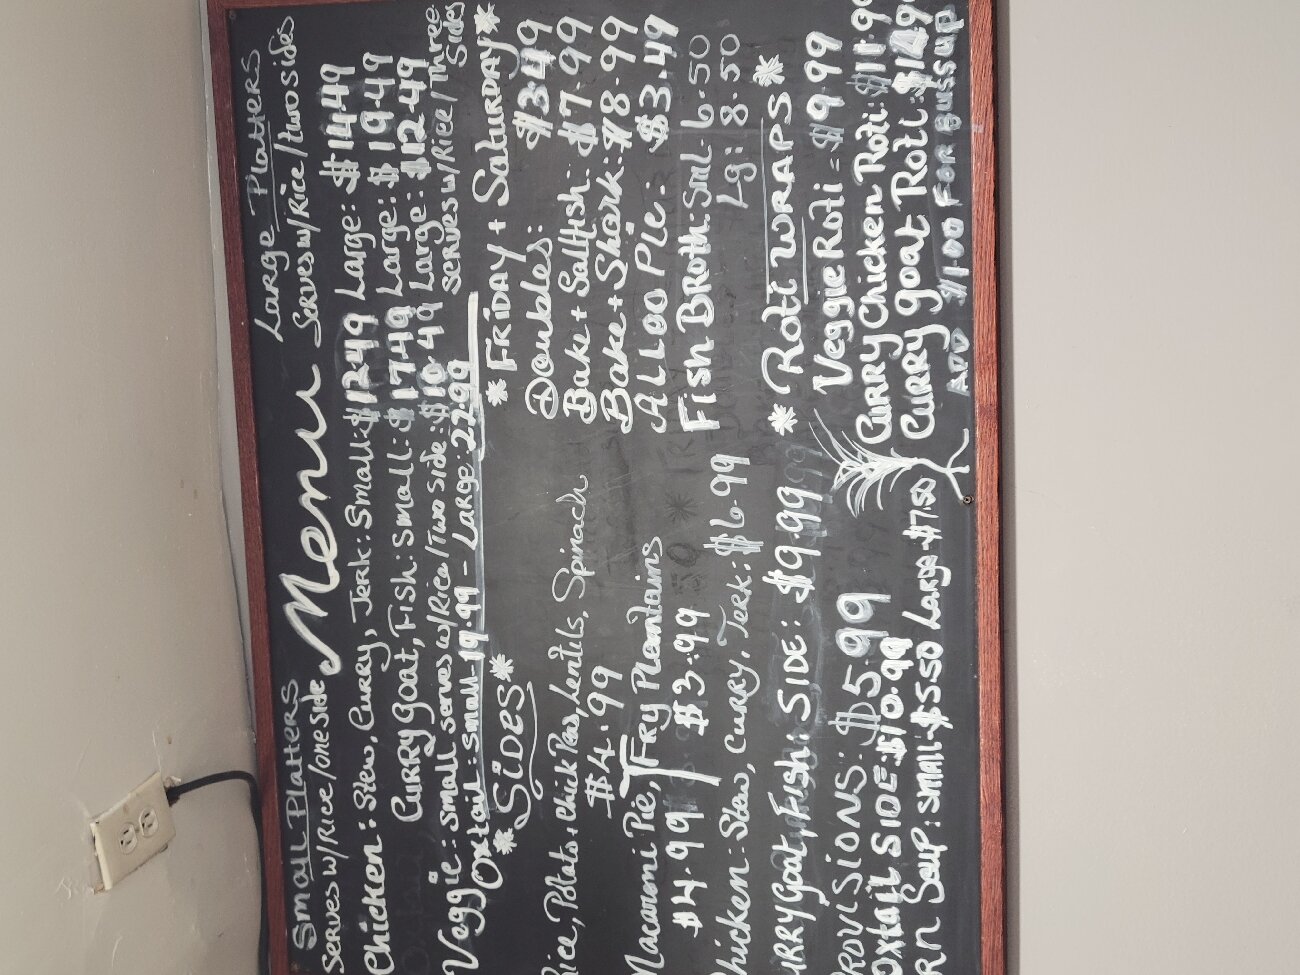 Menu
Small Platters
Serves w/Rice/one side
Large Platters
Serves w/Rice/two sides
Chicken: Stew, Curry, Jerk: Small: $12.49 Large: $14.49
Curry Goat, Fish: Small: $17.49 Large: $19.49
Veggie: Small serves w/Rice/Two side: $10.49 Large: $12.49
serves w/Rice/Three Sides
Oxtail: Small-19.99 - Large: 22.99
* Sides *
Rice, Potato + Chick Peas, Lentils, Spinach
$4.99
Macaroni Pie, Fry Plantains
$4.99 $3.99
Chicken: Stew, Curry, Jerk: $6.99
Curry Goat, Fish: Side: $9.99
Provisions: $5.99
Oxtail Side: $10.99
rn Soup: Small $5.50 Large $7.50
* Friday + Saturday *
Doubles: $3.49
Bake + Saltfish: $7.99
Bake + Shark: $8.99
Alloo Pie: $3.49
Fish Broth: Sml 6.50
Lg: 8.50
* Roti Wraps *
Veggie Roti = $9.99
Curry Chicken Roti: $11.99
Curry goat Roti:
Add $1.00 For Bussup